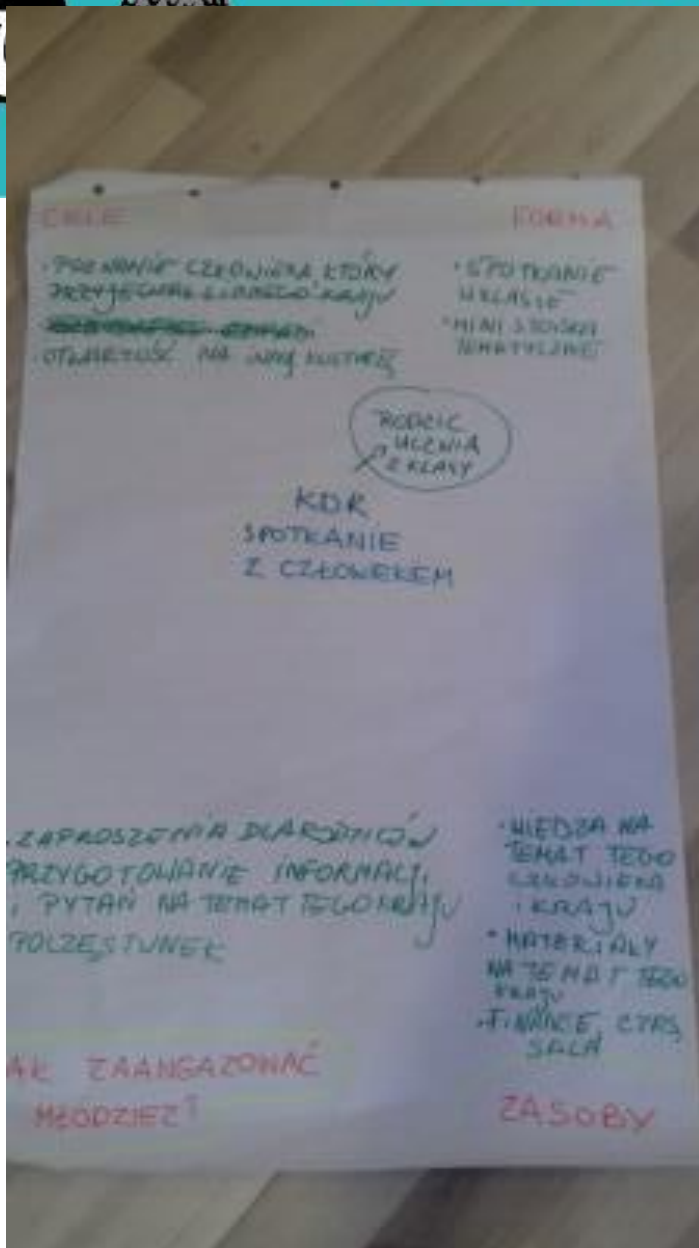 CELE
FORMA
• POZNANIE CZŁOWIEKA KTÓRY
PRZYJECHAŁ Z INNEGO KRAJU
• OTWARTOŚĆ NA INNĄ KULTURĘ
• SPOTKANIE
W KLASIE
• MINI STOISKA
TEMATYCZNE
RODZIC
UCZNIA
Z KLASY
KDR
SPOTKANIE
Z CZŁOWIEKEM
• ZAPROSZENIA DLA RODZICÓW
PRZYGOTOWANIE INFORMACJI,
, PYTAŃ NA TEMAT TEGO KRAJU
POCZĘSTUNEK
• WIEDZA NA
TEMAT TEGO
CZŁOWIEKA
I KRAJU
• MATERIAŁY
NA TEMAT TEGO
KRAJU
• FINANCE, CZAS,
SALA
AK ZAANGAZOWAĆ
MŁODZIEZ?
ZASOBY